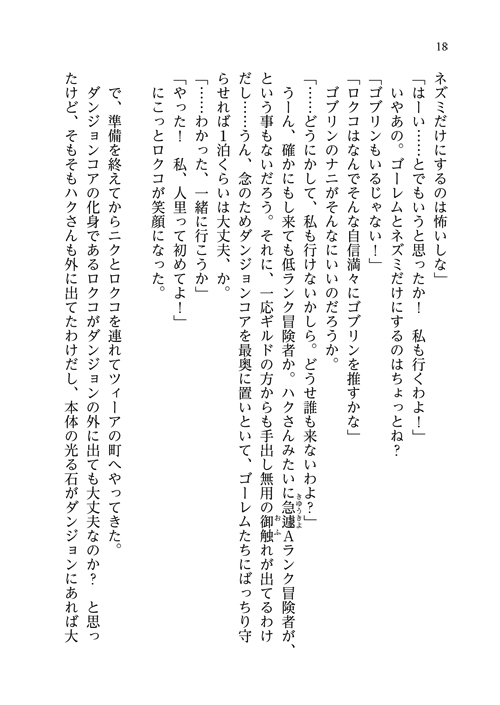 18
ネズミだけにするのは怖いしな」
「はーい……とでもいうと思ったか！　私も行くわよ！」
いやあの。ゴーレムとネズミだけにするのはちょっとね？
「ゴブリンもいるじゃない！」
「ロクコはなんでそんな自信満々にゴブリンを推すかな」
ゴブリンのナニがそんなにいいのだろうか。
「……どうにかして、私も行けないかしら。どうせ誰も来ないわよ？」
うーん、確かにもし来ても低ランク冒険者か。ハクさんみたいに急遽Ａランク冒険者が、
という事もないだろう。それに、一応ギルドの方からも手出し無用の御触れが出てるわけ
だし……うん、念のためダンジョンコアを最奥に置いといて、ゴーレムたちにばっちり守
らせれば１泊くらいは大丈夫、か。
「……わかった、一緒に行こうか」
「やった！　私、人里って初めてよ！」
にこっとロクコが笑顔になった。
で、準備を終えてからニクとロクコを連れてツィーアの町へやってきた。
ダンジョンコアの化身であるロクコがダンジョンの外に出ても大丈夫なのか？　と思っ
たけど、そもそもハクさんも外に出てたわけだし、本体の光る石がダンジョンにあれば大